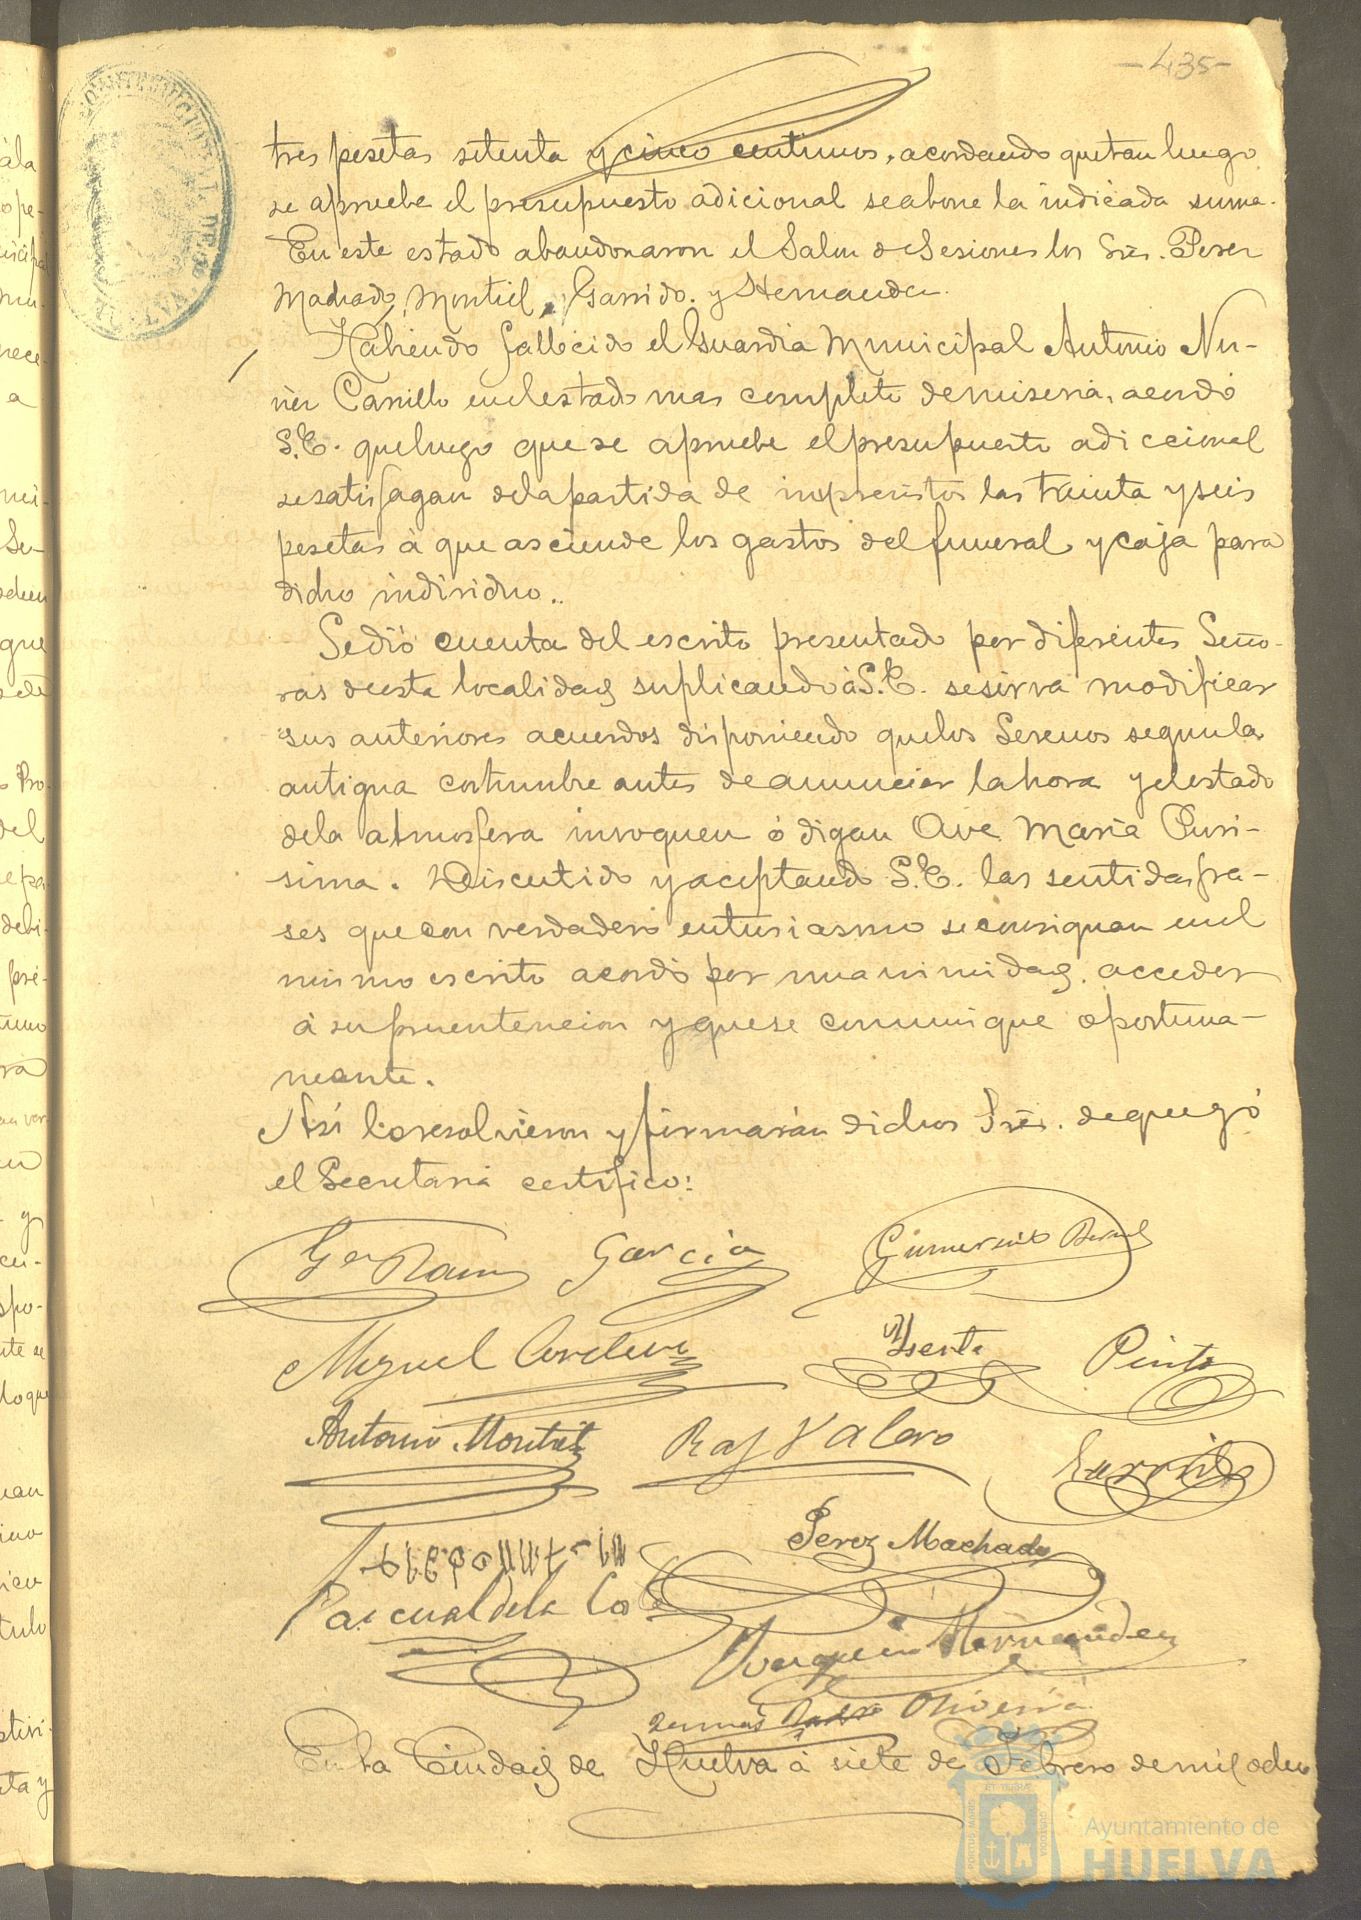 -435-
tres pesetas setenta y cinco centimos, acordando que tan luego
se apruebe el presupuesto adicional se abone la indicada suma.
En este estado abandonaron el Salon de Sesiones los Sres. Perez
Machado, Montiel, Garrido y Hernandez.
Habiendo fallecido el Guardia Municipal Antonio Nu-
ñez Carrillo en el estado mas completo de miseria, acordó
S.E. que luego que se apruebe el presupuesto adiccional
se satisfagan de la partida de imprevistos las treinta y seis
pesetas à que asciende los gastos del funeral y caja para
dicho individuo..
Se dió cuenta del escrito presentado por diferentes Seño-
ras de esta localidad suplicando à S.E. se sirva modificar
sus anteriores acuerdos disponiendo que los Serenos segun la
antigua costumbre antes de anunciar la hora y el estado
de la atmosfera invoquen ó digan Ave Maria Puri-
sima. Discutido y aceptando S.E. las sentidas fra-
ses que con verdadero entusiasmo se consignan en el
mismo escrito acordó por unanimidad acceder
à su pruentencion y que se comunique oportuna-
mente.
Así lo resolvieron y firmarán dichos Sres. de que yó
el Secretario certifico:
Garcia
Miguel Cordero
Pinto
Antonio Montiel
Raf Valero
Garrido
Perez Machado
Pascual de la
Joaquin Hernandez
Oliveira
En la Ciudad de Huelva á siete de Febrero de mil ocho
Ayuntamiento de
HUELVA